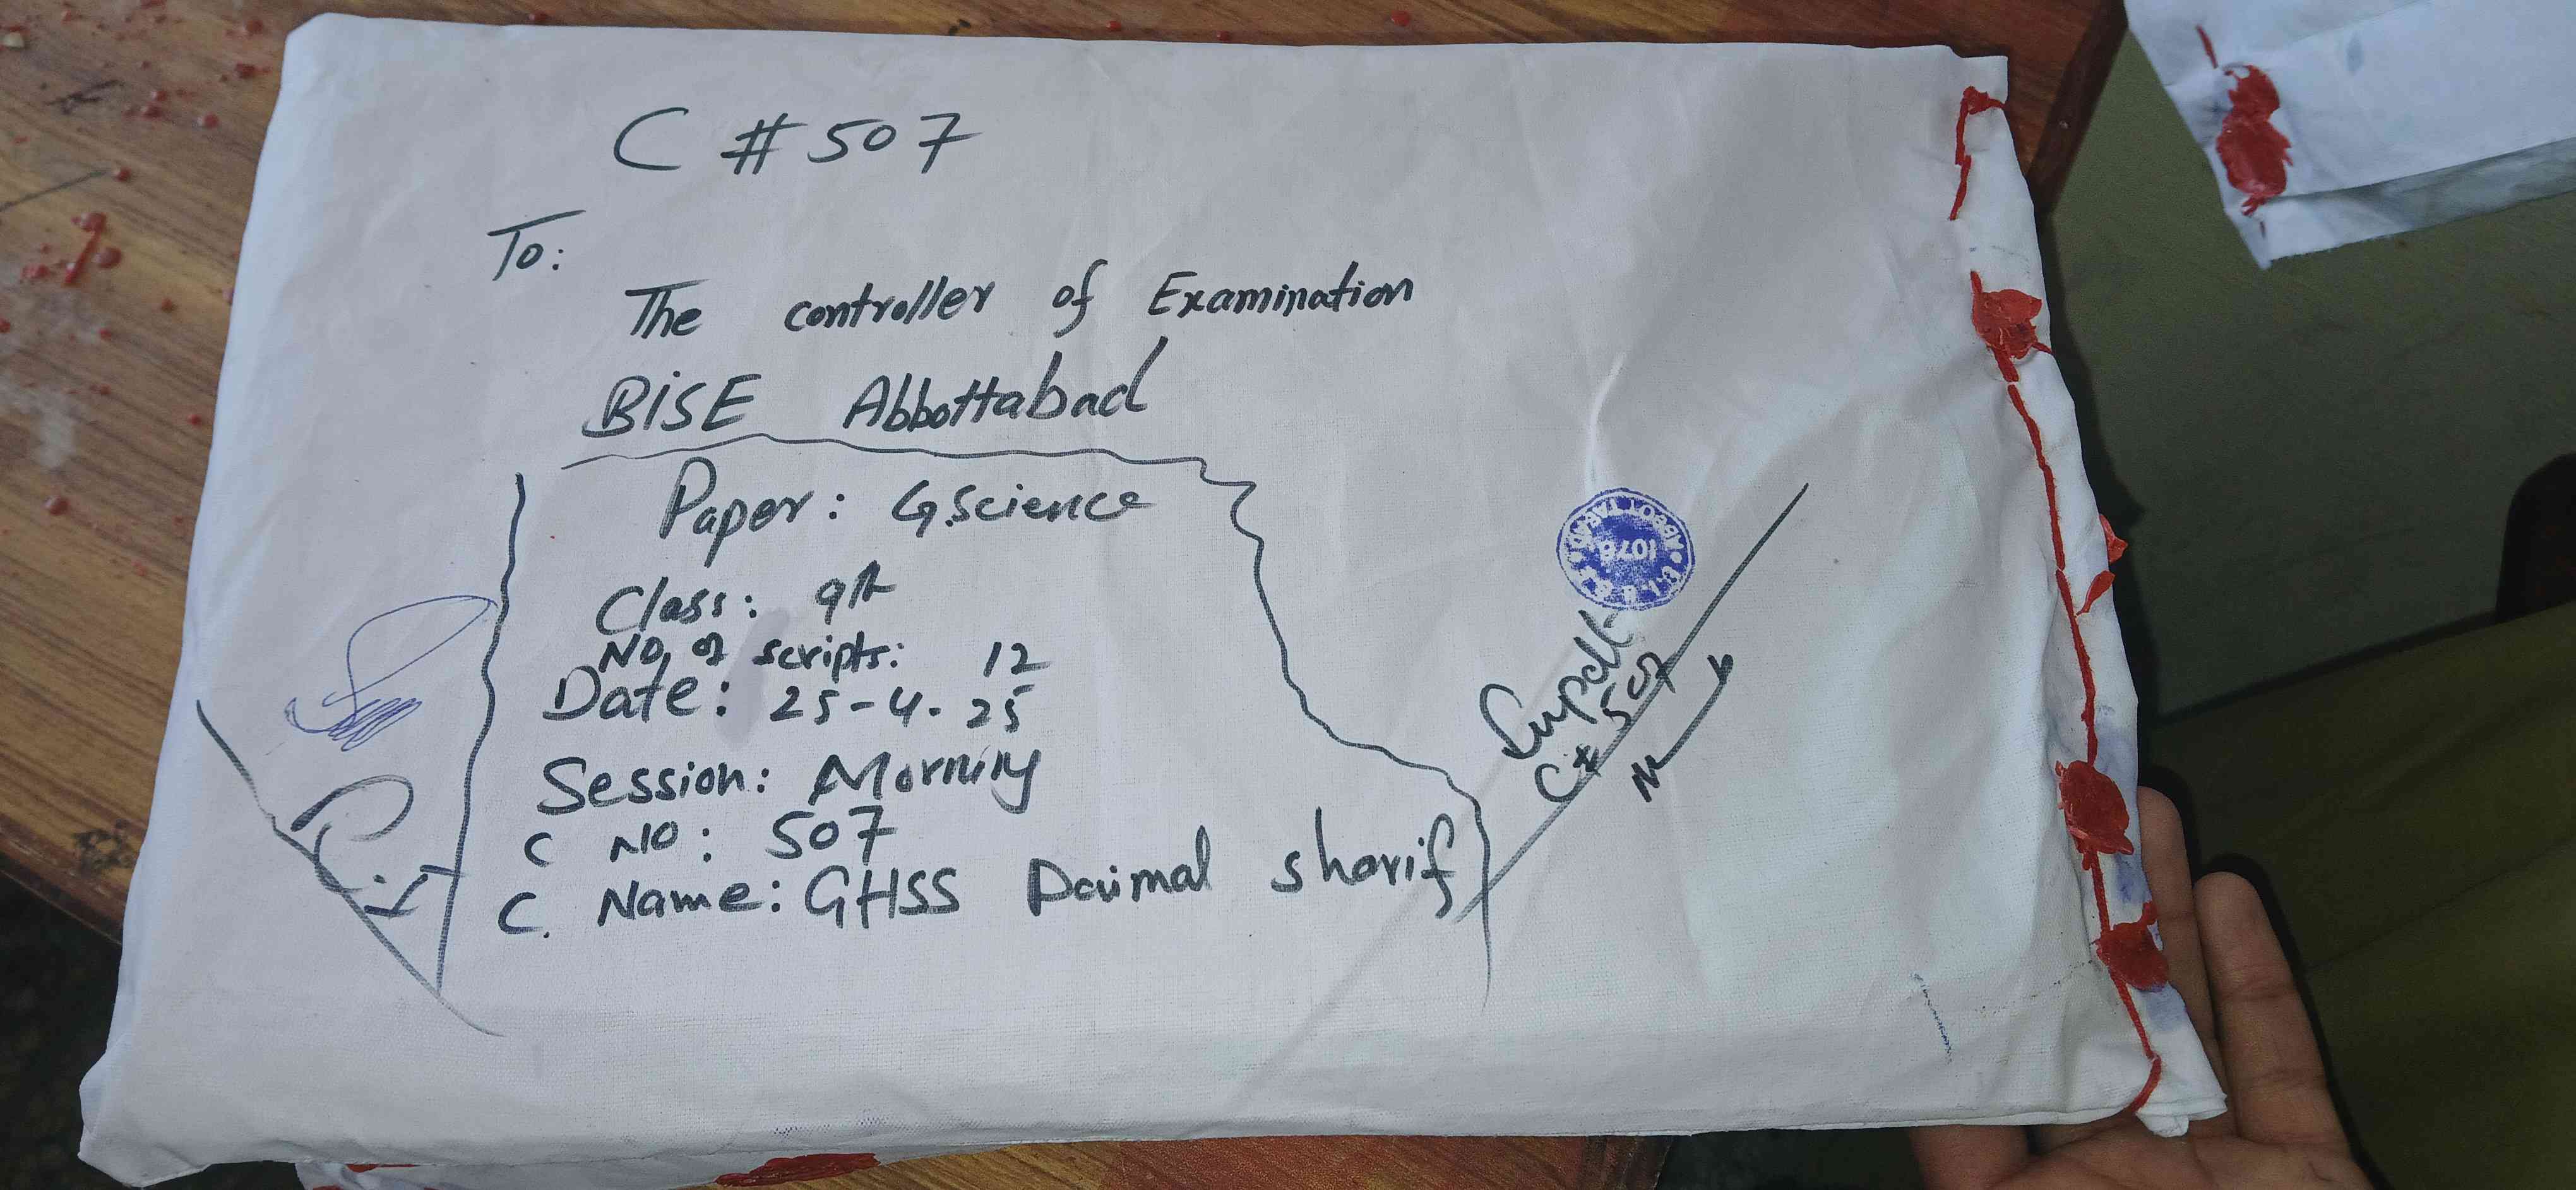 C # 507
To:
The controller of Examination
BISE Abbottabad
Paper: G.science
Class: 9th
No, of scripts: 12
Date: 25-4-25
Session: Morning
C NO: 507
C. Name: GHSS Darimal sharif
Supdt
C # 507
ABBOTTABAD
1076